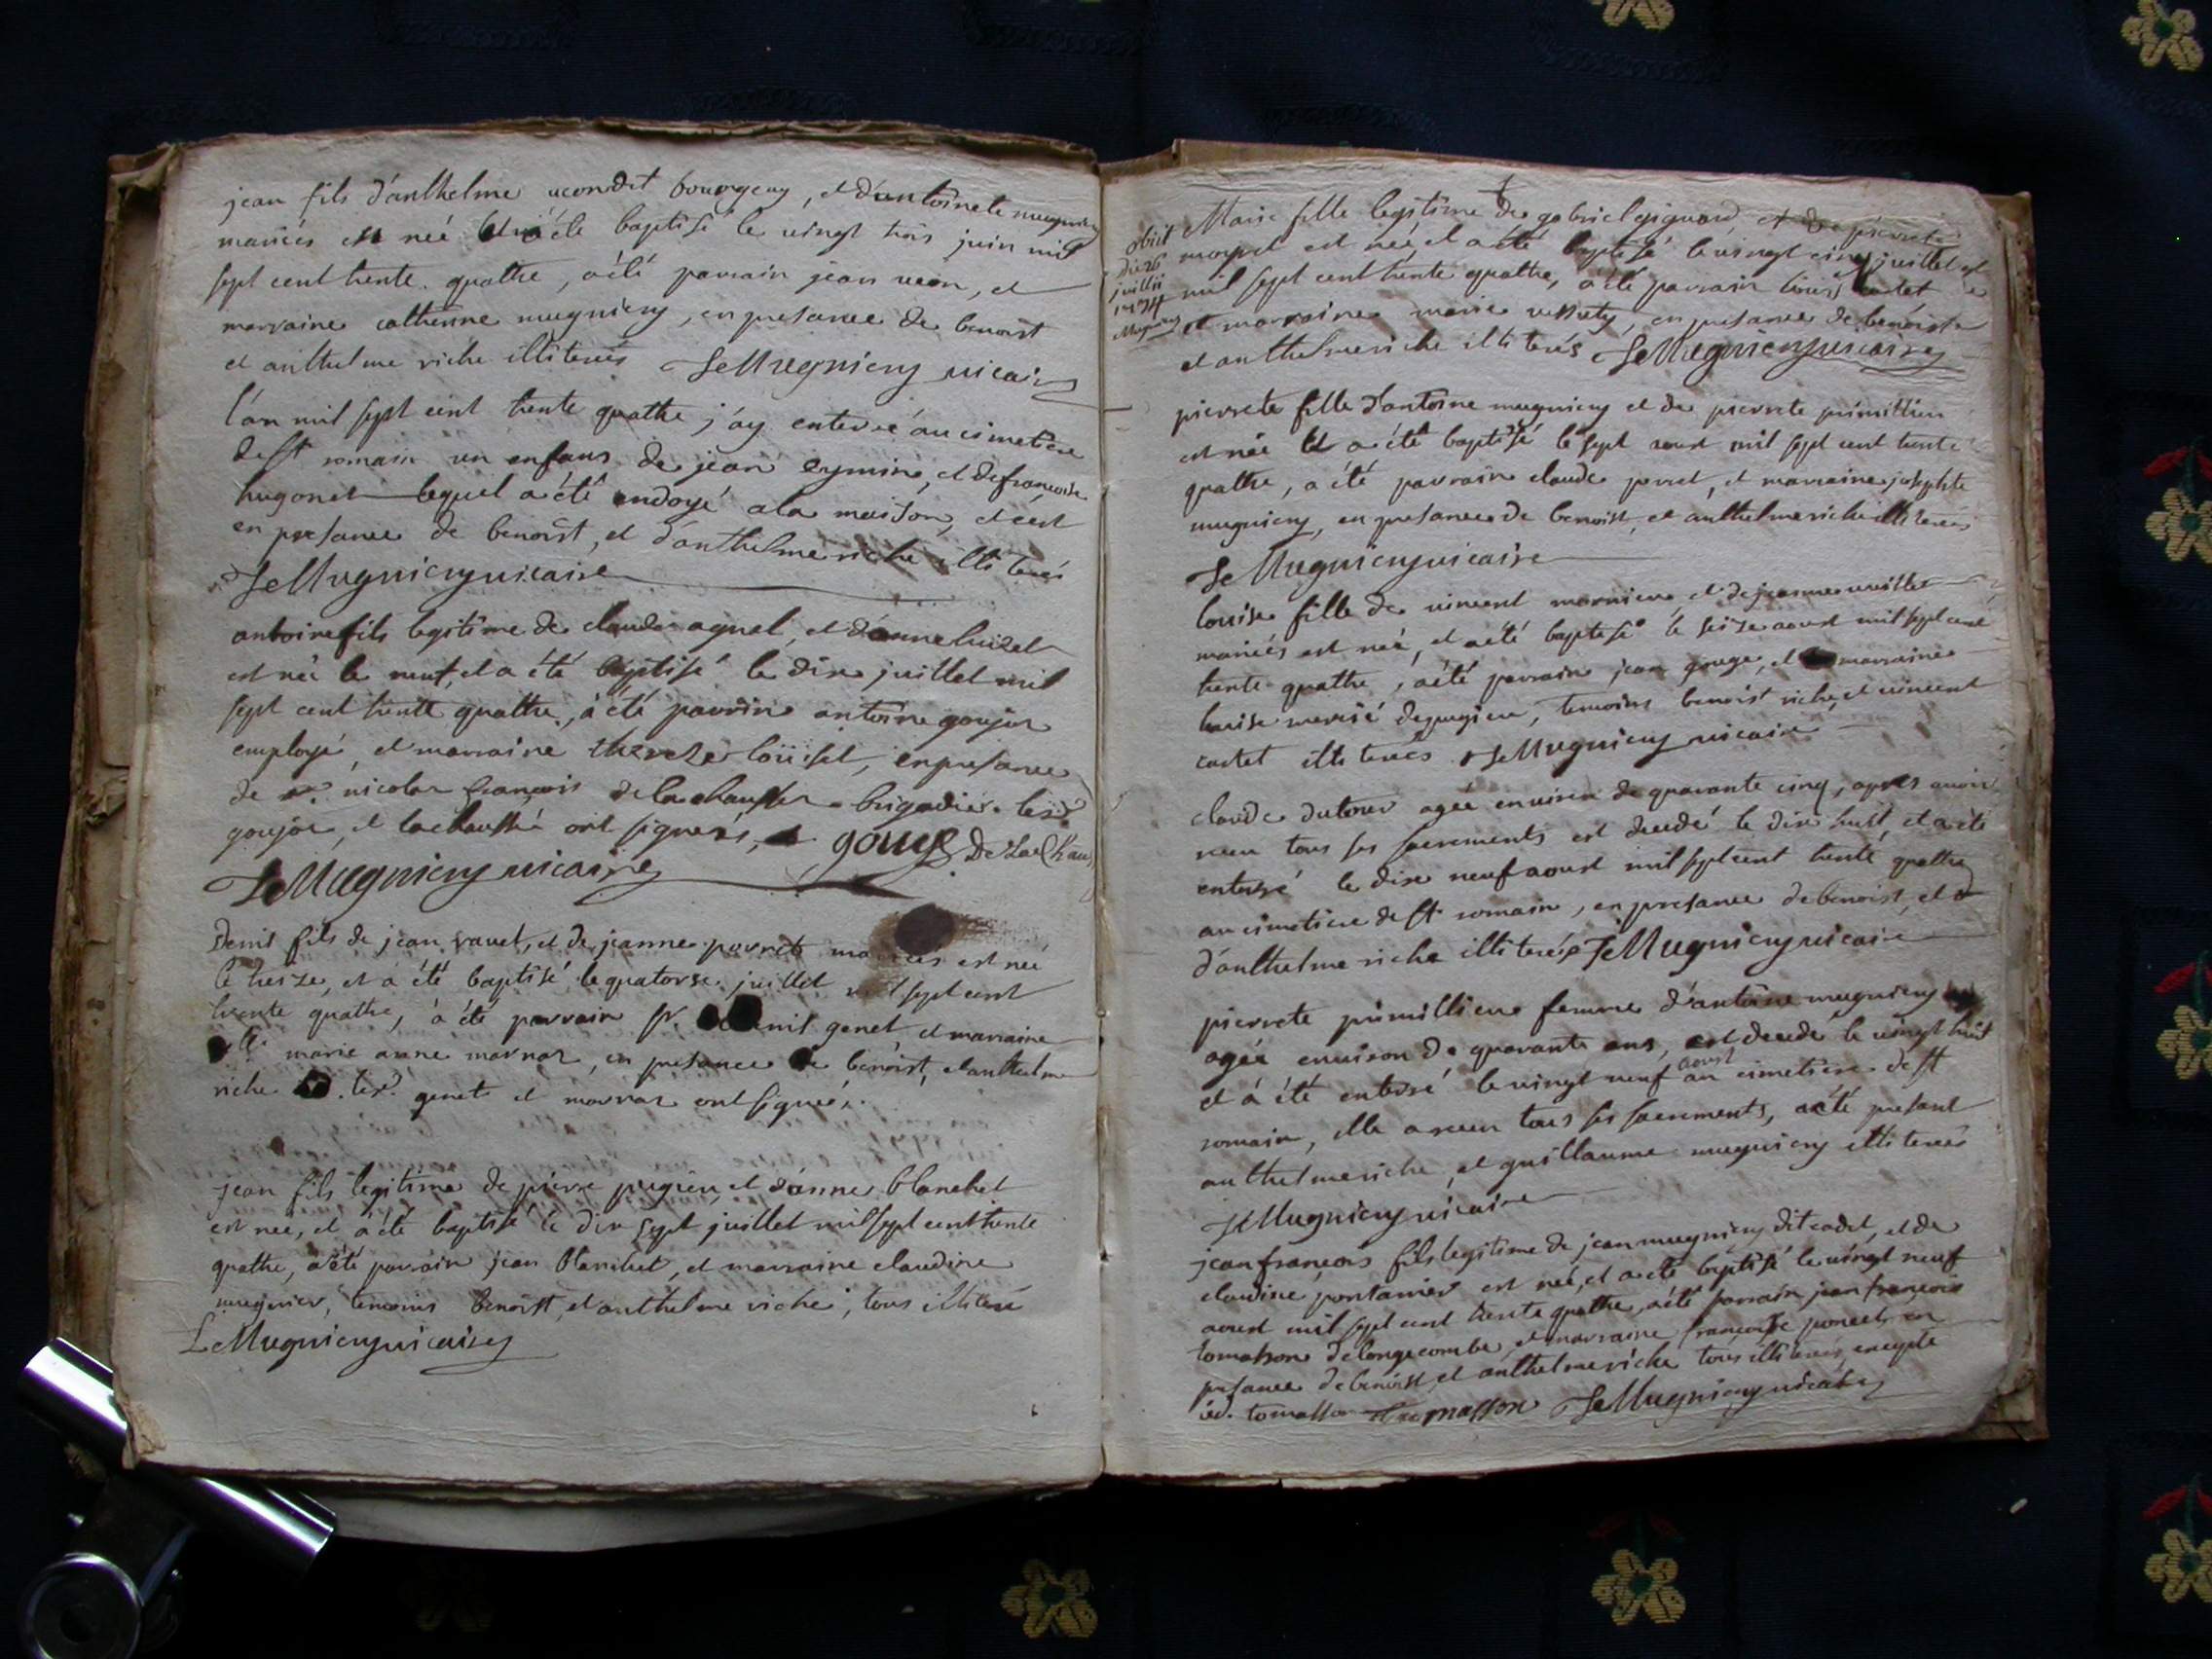 jean fils d'anthelme bourgeay, et d'antoinete mugniery
mariés est né et a été baptisé le vingt trois juin mil
sept cent trente quattre, a été parrain jean et
marraine catherine mugniery, en presance de benoist
et anthelme riche illiterés JeMugniery vicaire
l'an mil sept cent trente quattre j'ay enterré au cimetiere
de st romain un enfans de jean eymin, et de francoise
hugonet lequel a été endoyé a la maison, et c'est
en presance de benoist, et d'anthelme riche illiterés
JeMugniery vicaire
antoine fils legitime de claude agnel, et d'anne
est né le neuf, et a été baptisé le dix juillet mil
sept cent trente quattre, a été parrin antoine goujor
employé, et marraine loüiset, en presance
de nicolas françois de la chaussée brigadier. lesd
goujor, et lachaussée ont signés, gouje De La Chau
JeMugniery vicaire
denis fils de jean ravet, et de jeanne mariés est né
le treize, et a été baptisé le quatorse juillet mil sept cent
trente quattre, a été parrain sr. denis genet, et marraine
marie anne marnar, en presance de benoist, et anthelme
riche lesd. genet et marnar ont signés.
jean fils legitime de pierre pugieu, et d'anne blanchet
est née, et a été baptisé le dix sept juillet mil sept cent trente
quattre, a été parrain jean blanchet, et marraine claudine
mugnier, temoins benoist, et anthelme riche, tous illiteré
JeMugniery vicaire
obiit
die 26
juillii
1734
Mugniery
Marie fille legitime de gabriel gignard, et de pierrete
est née, et a été baptisé le vingt cinq juillet
mil sept cent trente quattre, a été parrain cartet
et marraine marie, en presance de benoist
et anthelme riche illiterés JeMugniery vicaire
pierrete fille d'antoine mugniery et de pierrete primillieu
est née et a été baptisé le sept aoust mil sept cent trente
quattre, a été parrain claude perret, et marraine josephte
mugniery, en presance de benoist, et anthelme riche illiterés
JeMugniery vicaire
louise fille de vincent marnieu et de jeanne
mariés est née, et a été baptisé le seise aoust mil sept cent
trente quattre, a été parrain jean gouge, et marraine
louise de pugieu, temoins benoist riche, et vincent
cartet illiterés JeMugniery vicaire
claude dutour agée environ de quarante cinq, apres avoir
receu tous ses sacrements est decedé le dix huit, et a été
enterré le dix neuf aoust mil sept cent trente quattre
au cimetiere de st romain, en presance de benoist, et
d'anthelme riche illiterés JeMugniery vicaire
pierrete primillieu femme d'antoine mugniery
agée environ de quarante ans, est decedé le vingt huit
et a été enterré le vingt neuf aoust au cimetiere de st
romain, elle a receu tous ses sacrements, a été presant
anthelme riche, et guillaume mugniery illiterés
JeMugniery vicaire
jean françois fils legitime de jean mugniery dit cadet, et de
claudine pontanier est né, et a été baptisé le vingt neuf
aoust mil sept cent trente quattre, a été parrain jean françois
tomasson de longecombe et marraine françoise poncet, en
presance de benoist, et anthelme riche tous illiterés, excepté
led. tomasson Tomasson JeMugniery vicaire